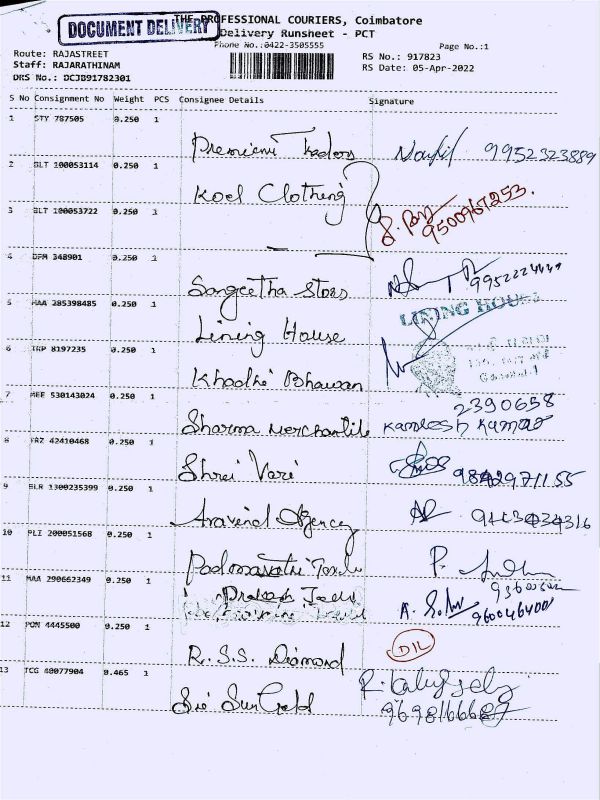 DOCUMENT DELIVERY
THE PROFESSIONAL COURIERS, Coimbatore
Delivery Runsheet - PCT
Phone No.:0422-3505555
Page No.:1
Route: RAJASTREET
Staff: RAJARATHINAM
DRS No.: DCJB91782301
RS No.: 917823
RS Date: 05-Apr-2022
S No Consignment No Weight PCS Consignee Details Signature
1 STY 787505 0.250 1
9952323889
2 BLT 100053114 0.250 1
Koel Clothing
3 BLT 100053722 0.250 1
9500967253.
4 DPM 348901 0.250 1
Sangeetha Stors
5 MAA 285398485 0.250 1
Lining House
LINING HOUSE
6 TRP 8197235 0.250 1
Khadhi Bhawan
7 MEE 530143024 0.250 1
2390658
Sharma Merchantile Kamlesh Kumar
8 VRZ 42410468 0.250 1
Shrei Vari 9842971155
9 BLR 1300235399 0.250 1
Aravind Agency
10 PLI 200051568 0.250 1
11 MAA 290662349 0.250 1
Prakash
12 PON 4445500 0.250 1
R.S.S. Diamond DIL
13 TCG 40077904 0.465 1
Sri Sun Gold